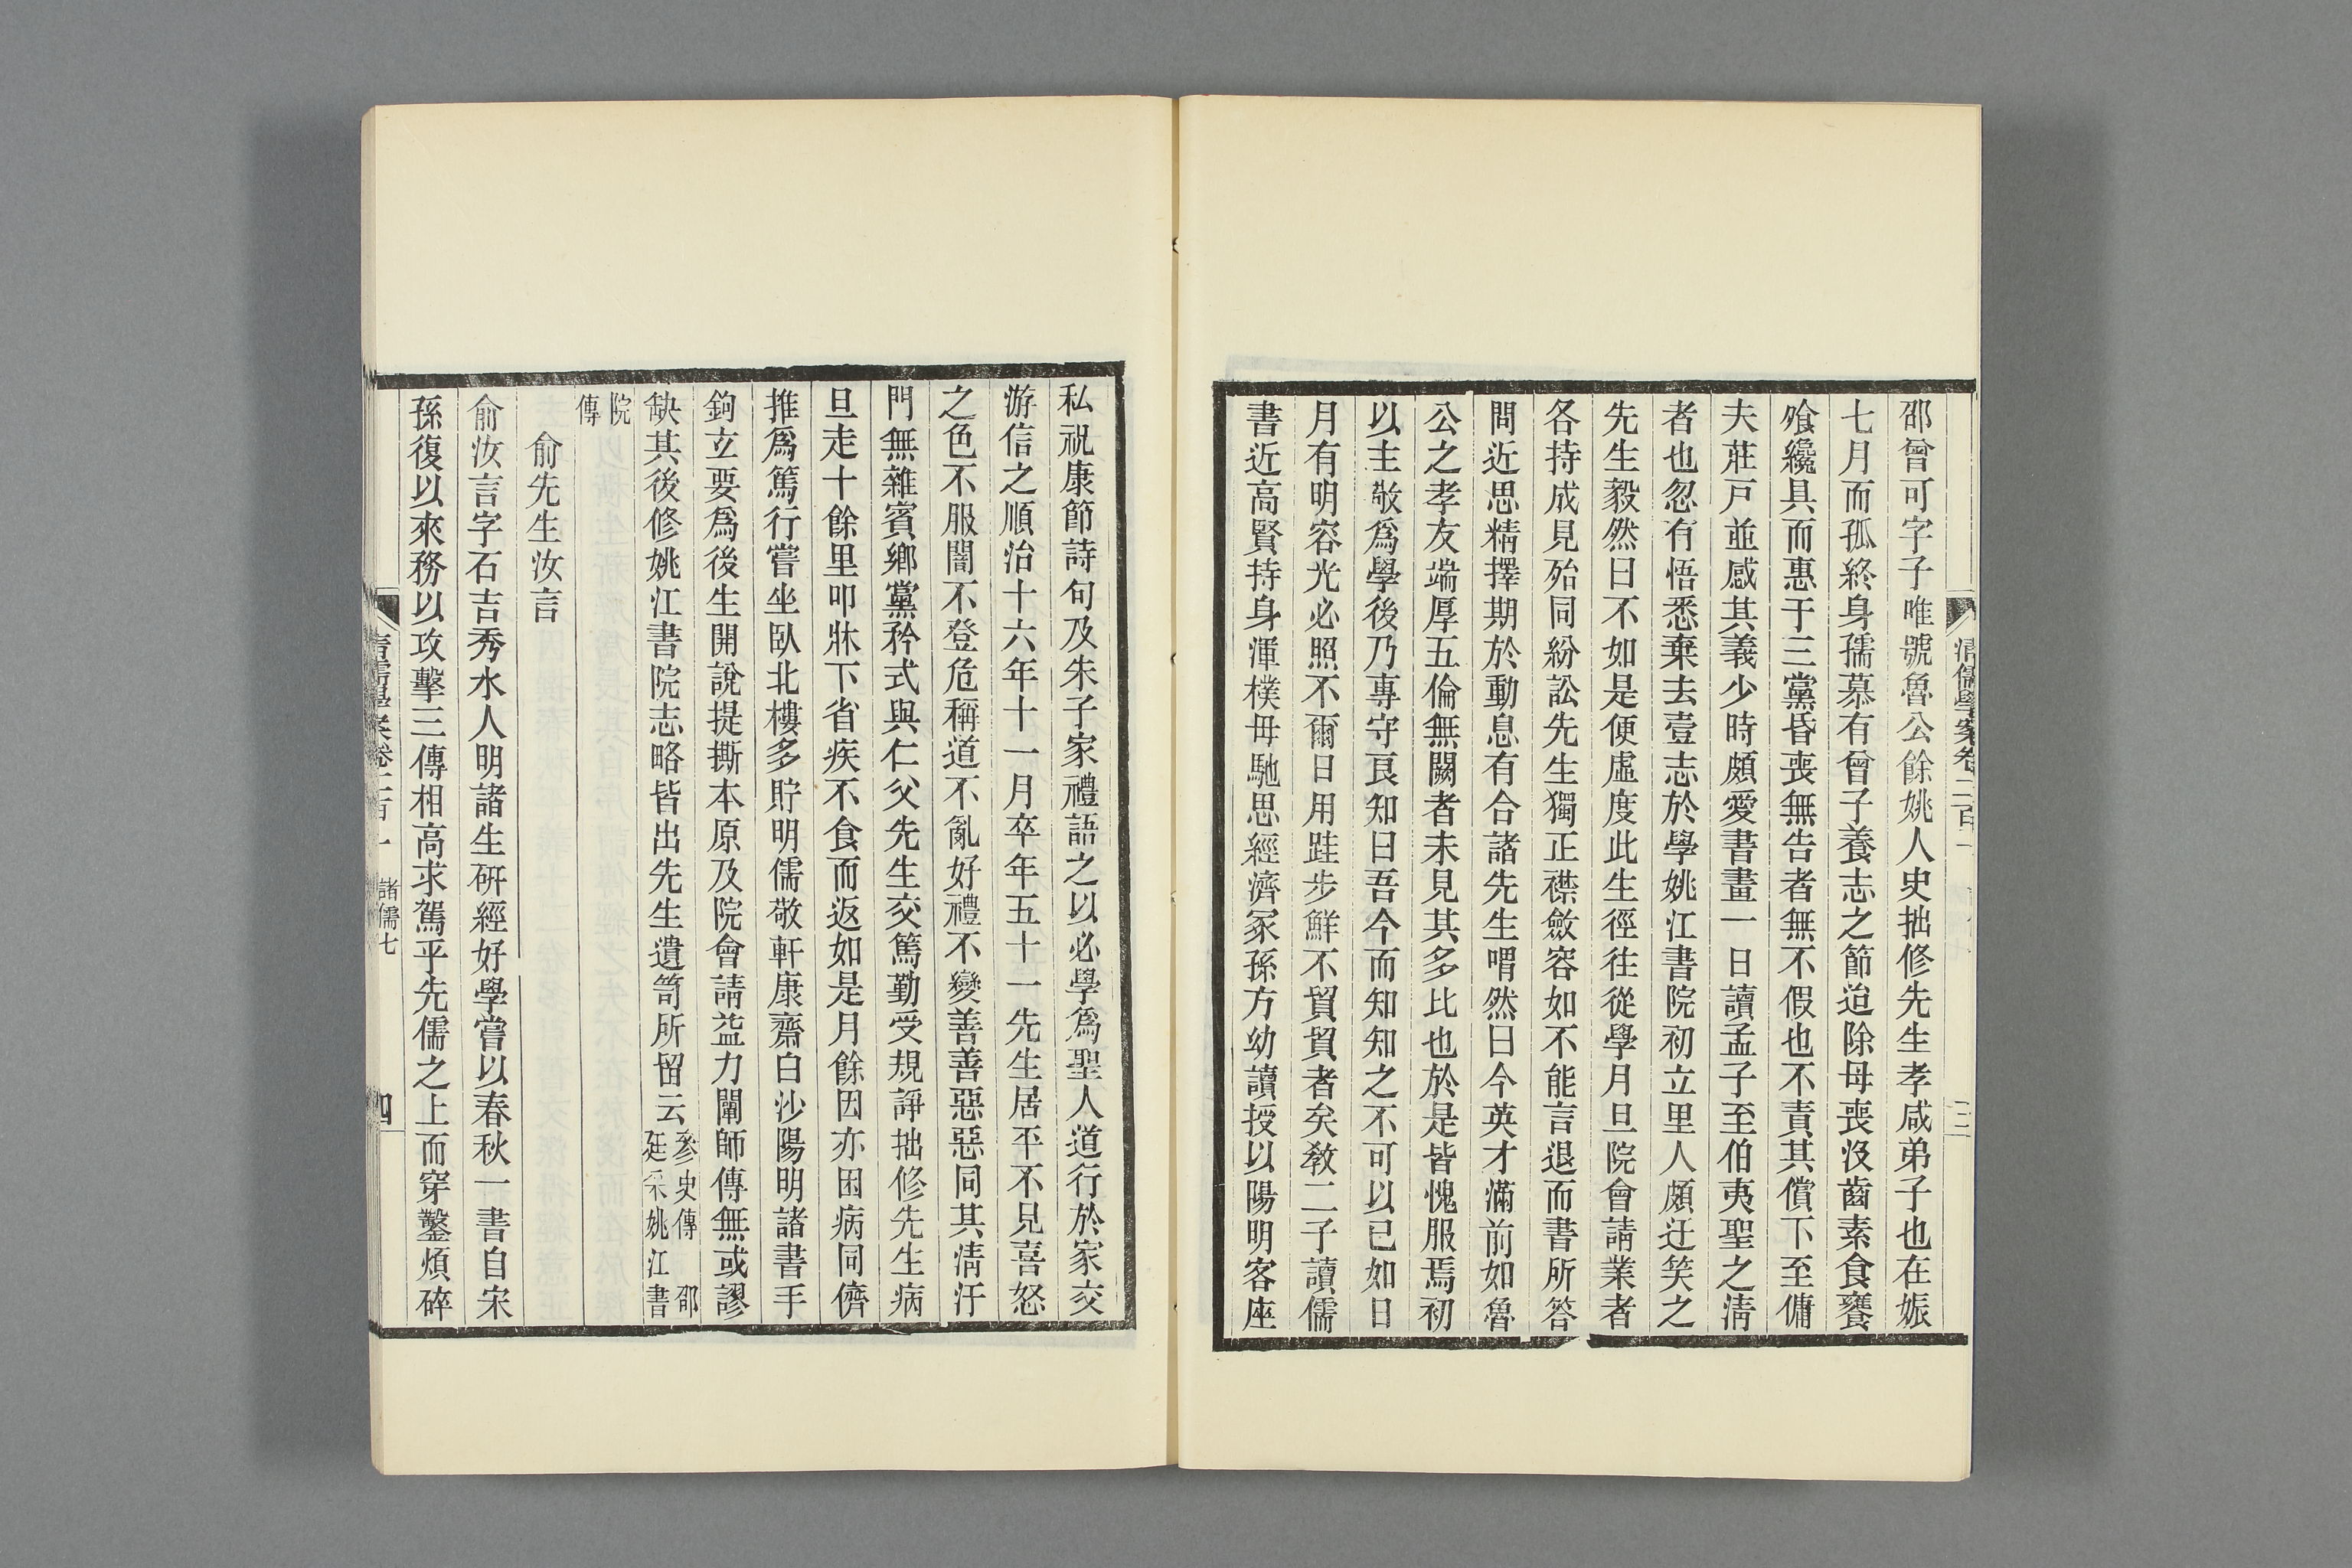 清儒學案卷二百一
三
邵曾可字子唯號魯公餘姚人史拙修先生孝咸弟子也在娠
七月而孤終身孺慕有曾子養志之節迨除母喪沒齒素食饔
飧纔具而惠于三黨昏喪無告者無不假也不責其償下至傭
夫莊戸並感其義少時頗愛書畫一日讀孟子至伯夷聖之淸
者也忽有悟悉棄去壹志於學姚江書院初立里人頗迂笑之
先生毅然曰不如是便虛度此生徑往從學月旦院會請業者
各持成見殆同紛訟先生獨正襟斂容如不能言退而書所答
問近思精擇期於動息有合諸先生喟然曰今英才滿前如魯
公之孝友端厚五倫無闕者未見其多比也於是皆愧服焉初
以主敬爲學後乃專守良知曰吾今而知知之不可以已如日
月有明容光必照不爾日用跬步鮮不貿貿者矣敎二子讀儒
書近高賢持身渾樸毋馳思經濟冢孫方幼讀授以陽明客座
私祝康節詩句及朱子家禮語之以必學爲聖人道行於家交
游信之順治十六年十一月卒年五十一先生居平不見喜怒
之色不服闇不登危稱道不亂好禮不變善善惡惡同其淸汙
門無雜賓鄉黨矜式與仁父先生交篤勤受規諍拙修先生病
旦走十餘里叩牀下省疾不食而返如是月餘因亦困病同儕
推爲篤行嘗坐臥北樓多貯明儒敬軒康齋白沙陽明諸書手
鉤玄要爲後生開說提撕本原及院會請益力闡師傳無或謬
缺其後修姚江書院志略皆出先生遺笥所留云參史傳　邵
廷采姚江書
院
傳
俞先生汝言
俞汝言字石吉秀水人明諸生硏經好學嘗以春秋一書自宋
孫復以來務以攻擊三傳相高求駕乎先儒之上而穿鑿煩碎
清儒學案卷二百一　諸儒七
四